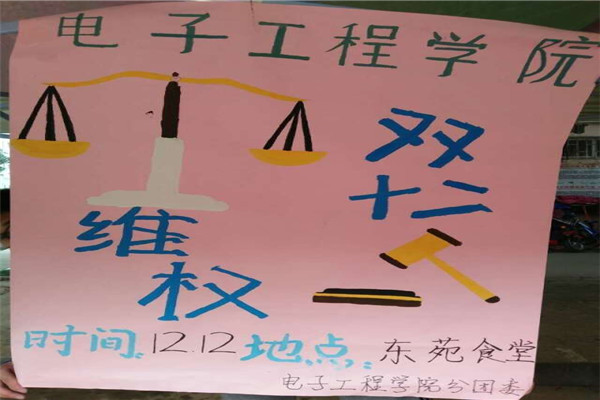 电子工程学院
双
十二
维
权
时间:12.12地点:东苑食堂
电子工程学院分团委